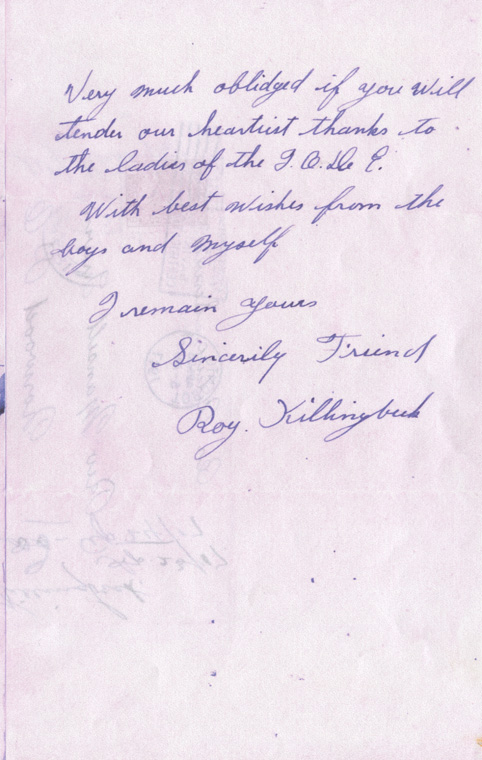 Very much oblidged if you will
tender our heartiist thanks to
the ladies of the I.O.D.E.
With best wishes from the
boys and myself
I remain yours
Sincerily Friend
Roy. Killingbeck